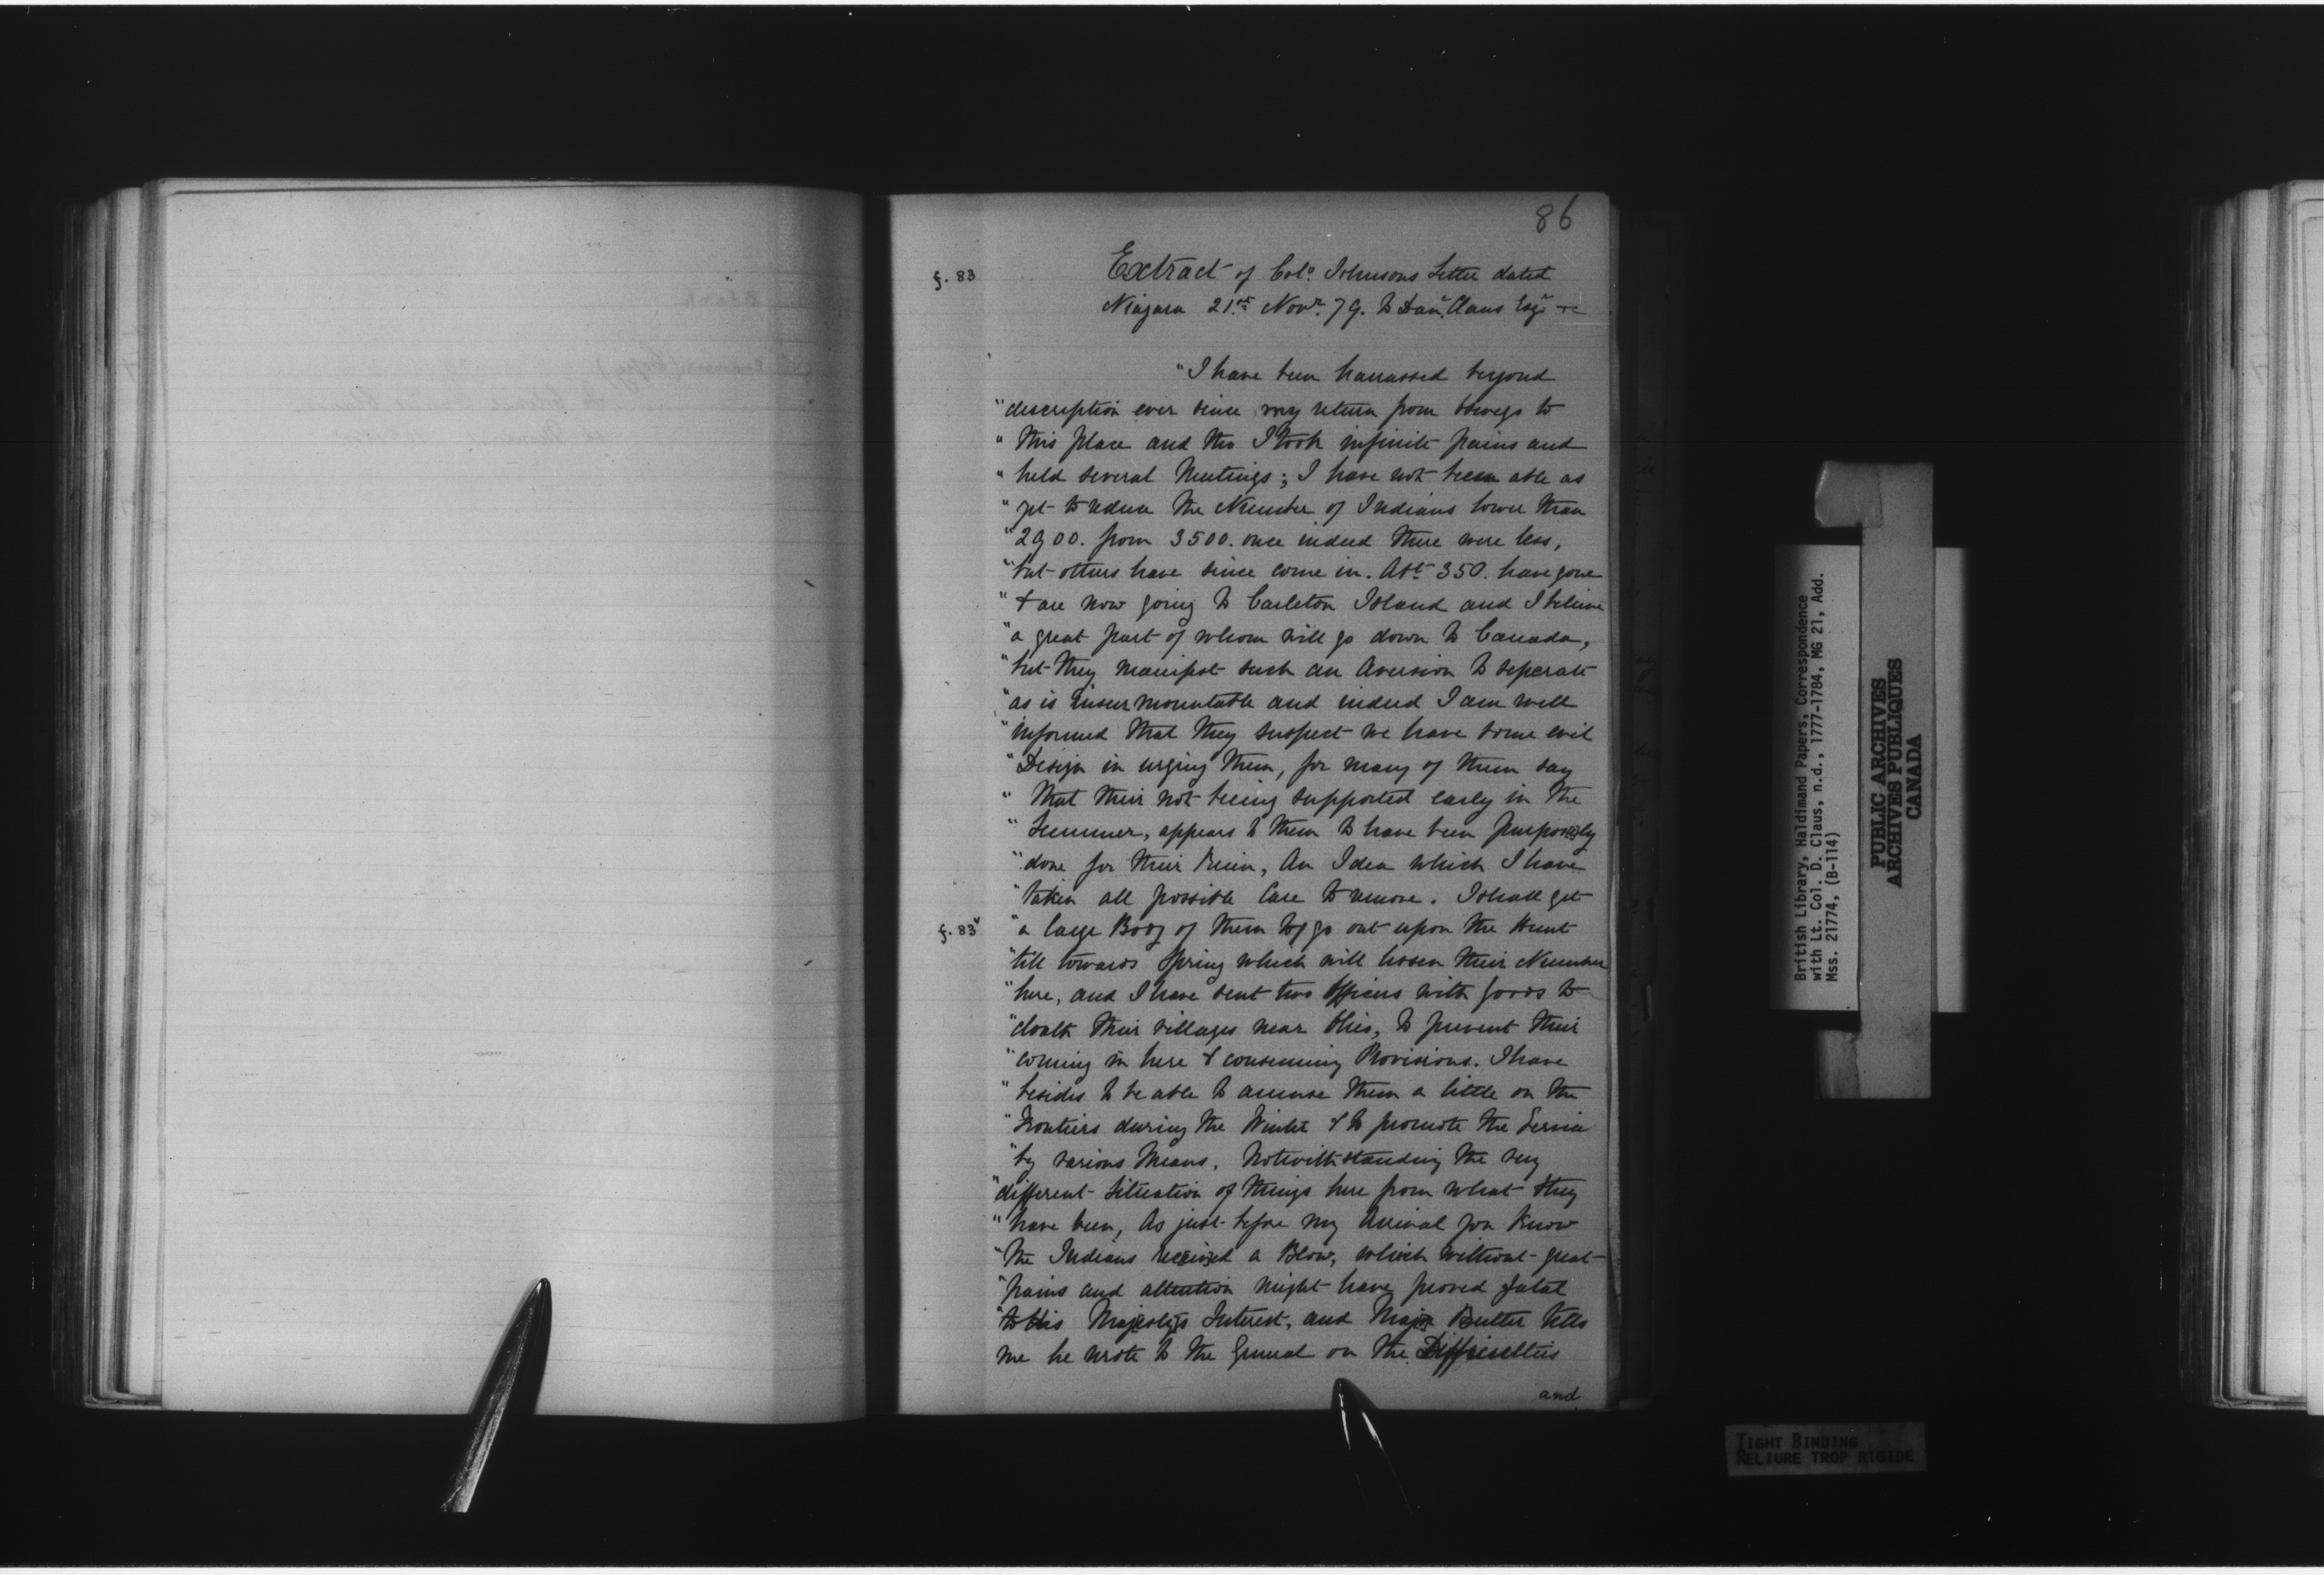 86
f. 83
Extract of Colo. Johnsons Letter dated
Niagara 21st Novr. 79. to Danl. Claus Esqr &c
"I have been harrassed beyond
"description ever since my return from Oswego to
"this place and tho I took infinite pains and
"held several Meetings; I have not been able as
"yet to reduce the Number of Indians lower than
"2900. from 3500. once indeed there were less,
"but others have since come in. Abt. 350. have gone
"& are now going to Carleton Island and I believe
"a great part of whom will go down to Canada,
"but they manifest such an Aversion to seperate
"as is insurmountable and indeed I am well
"informed that they suspect we have some evil
"Design in urging them, for many of them say
"that their not being supported early in the
"Summer, appears to them to have been purposely
"done for their Ruin, An Idea which I have
"taken all possible Care to remove. I shall get
f. 83v
"a large Body of them to go out upon the Hunt
"till towards Spring which will lessen their Number
"here, and I have sent two Officers with goods to
"cloath their villages near this, to prevent their
"coming in here & consuming Provisions. I have
"besides to be able to amuse them a little on the
"Frontiers during the Winter & to promote the Service
"by various Means. Notwithstanding the very
"different Situation of things here from what they
"have been, As just before my Arrival you know
"the Indians received a Blow, which without great
"pains and attention might have proved fatal
"to His Majesty's Interest, and Major Butler tells
me he wrote to the General on the Difficulties
and
British Library, Haldimand Papers, Correspondence
with Lt. Col. D. Claus, n.d., 1777-1784, MG 21, Add.
Mss. 21774, (B-114)
PUBLIC ARCHIVES
ARCHIVES PUBLIQUES
CANADA
TIGHT BINDING
RELIURE TROP RIGIDE